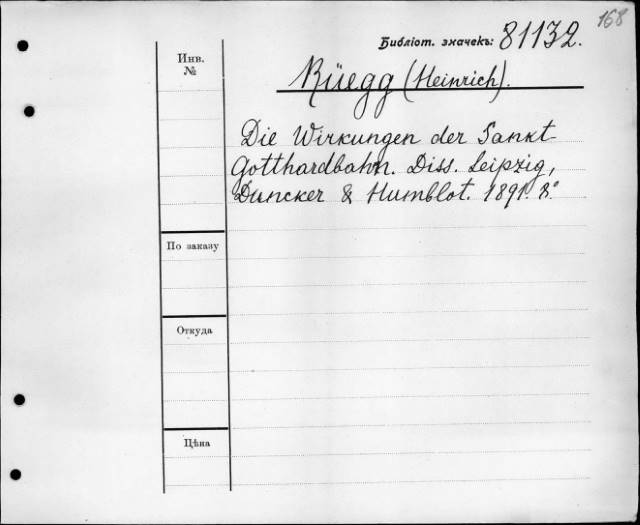 168
Библіот. значекъ: 81132.
Инв.
№
Rüegg (Heinrich).
Die Wirkungen der Sankt
Gotthardbahn. Diss. Leipzig,
Duncker & Humblot. 1891. 8°.
По заказу
Откуда
Цѣна